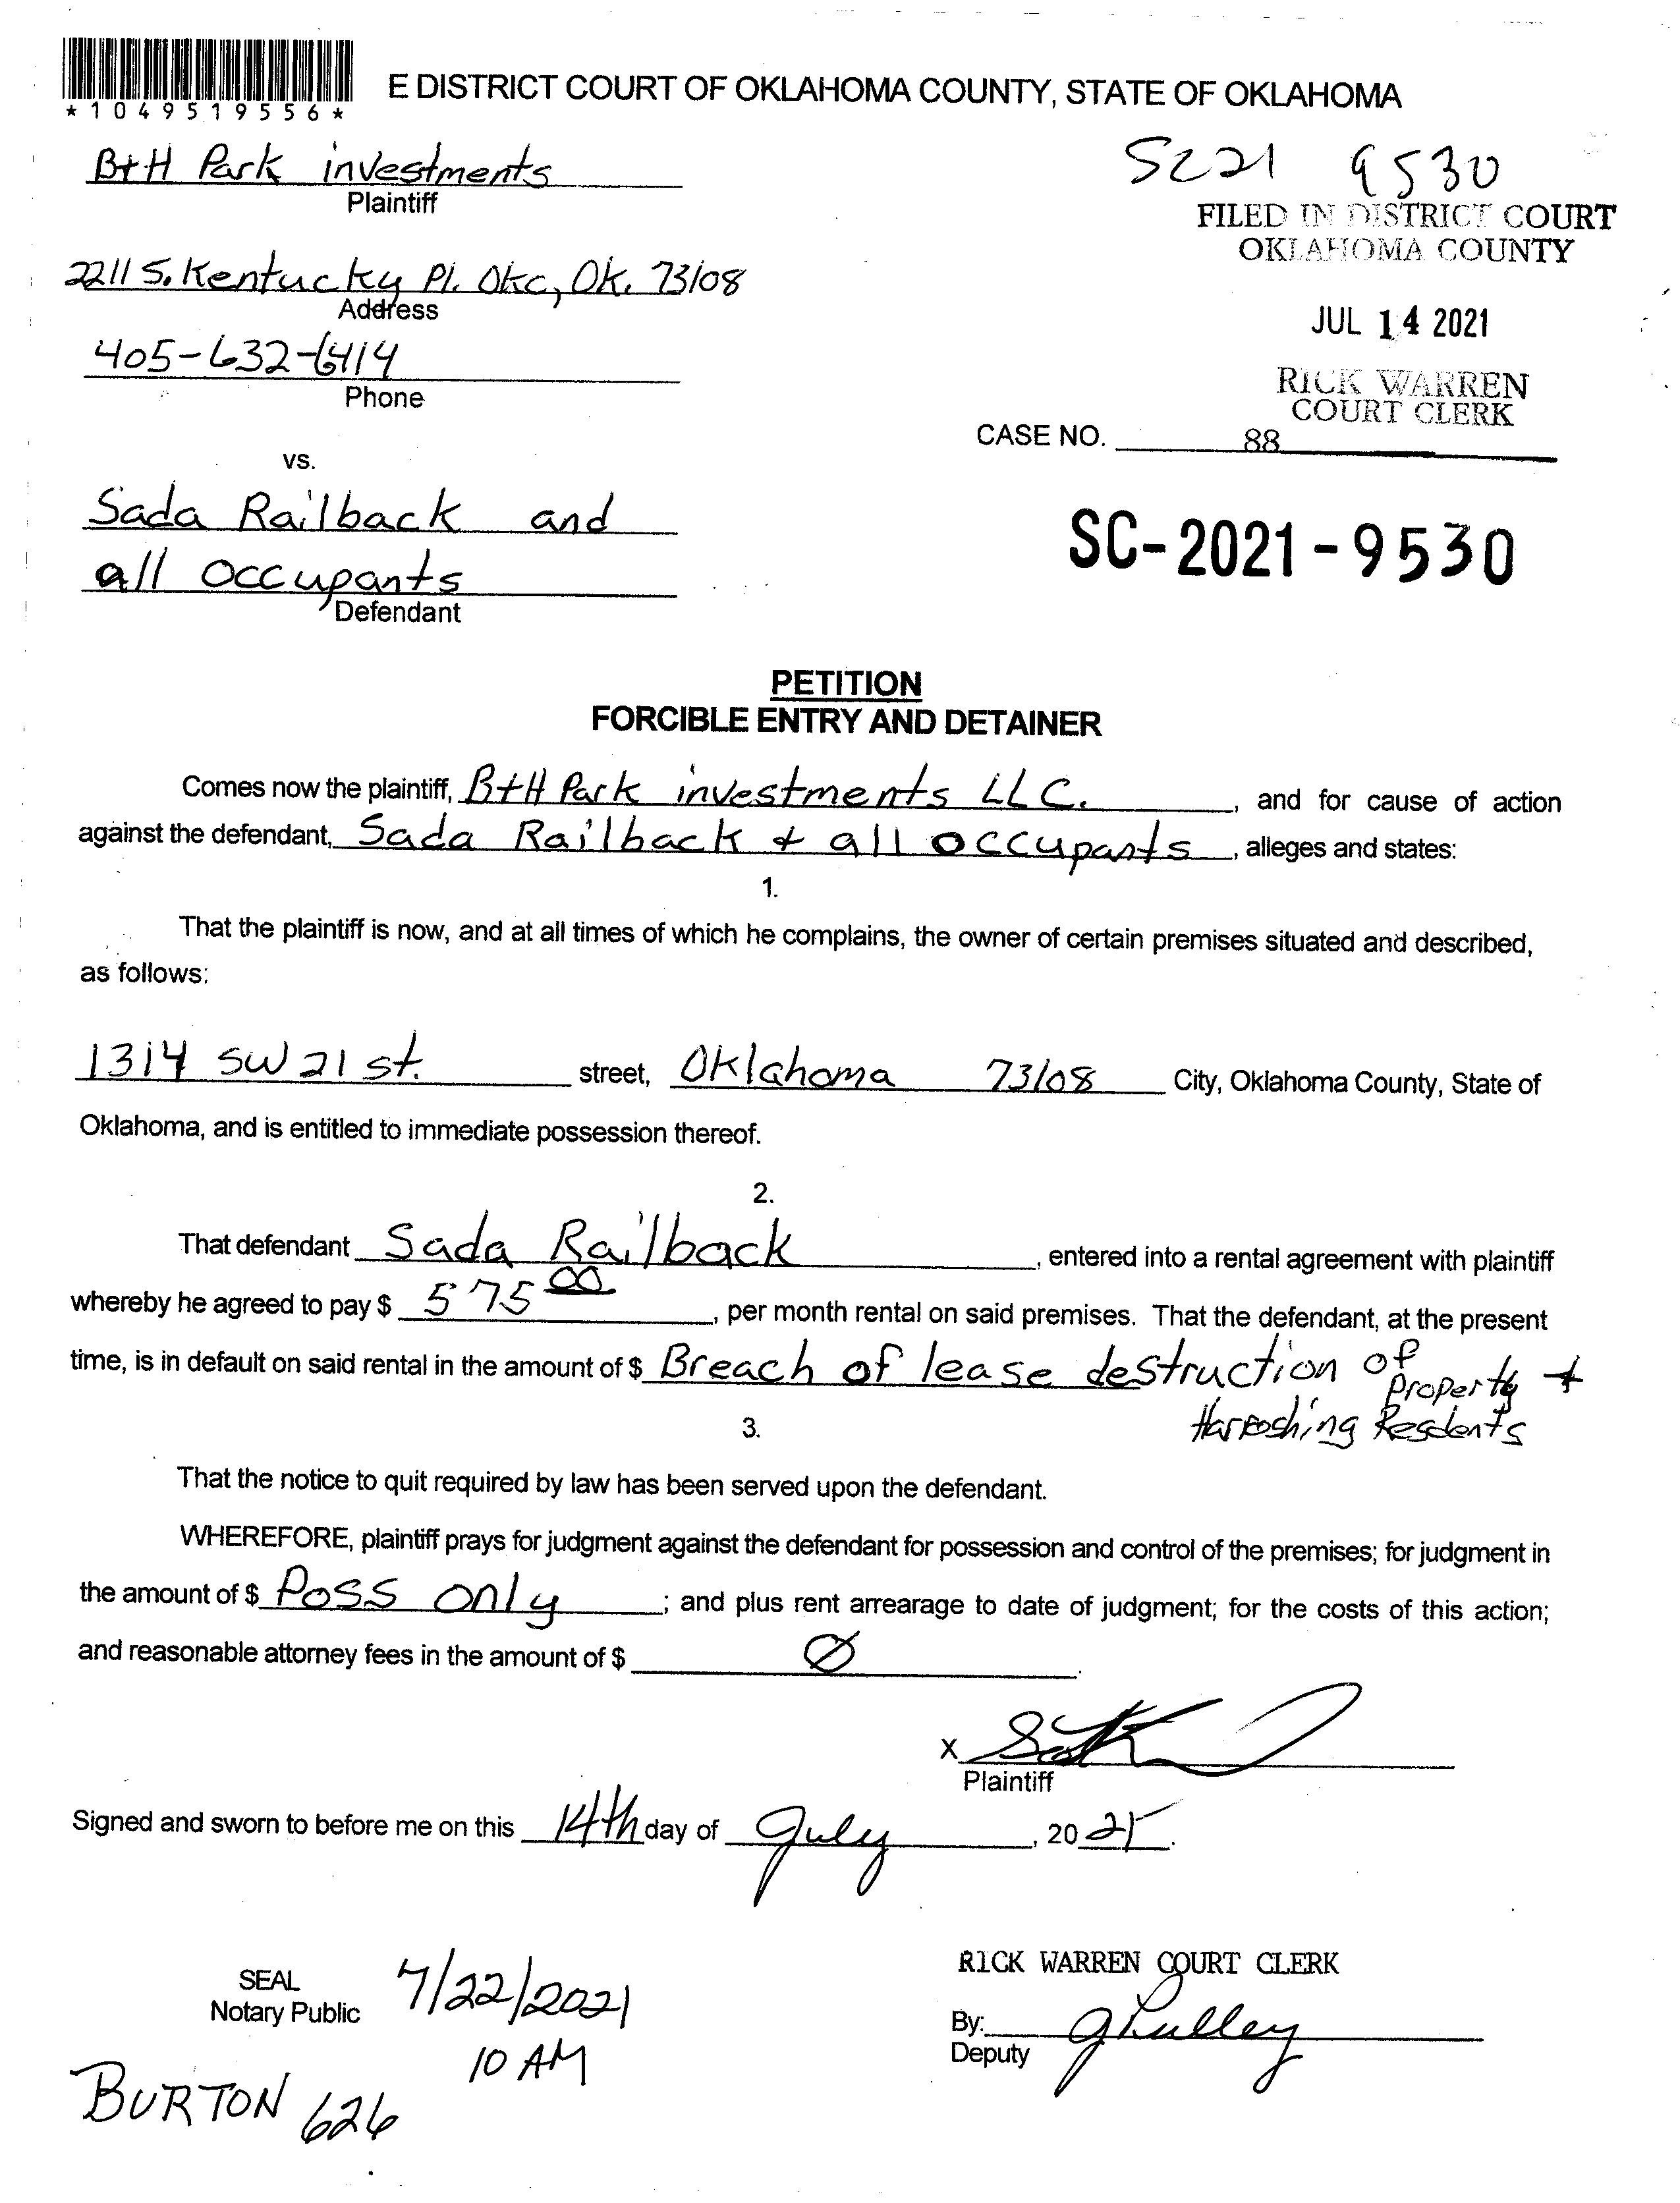 *1049519556*
E DISTRICT COURT OF OKLAHOMA COUNTY, STATE OF OKLAHOMA
B+H Park investments
Plaintiff
SC21 9530
FILED IN DISTRICT COURT
OKLAHOMA COUNTY
2211 S. Kentucky Pl. Okc, Ok. 73108
Address
JUL 14 2021
405-632-6414
Phone
RICK WARREN
COURT CLERK
CASE NO. 88
vs.
Sada Railback and
all occupants
Defendant
SC-2021-9530
PETITION
FORCIBLE ENTRY AND DETAINER
Comes now the plaintiff, B+H Park investments LLC. , and for cause of action
against the defendant, Sada Railback + all occupants , alleges and states:
1.
That the plaintiff is now, and at all times of which he complains, the owner of certain premises situated and described,
as follows:
1314 SW 21 st. street, Oklahoma 73108 City, Oklahoma County, State of
Oklahoma, and is entitled to immediate possession thereof.
2.
That defendant Sada Railback , entered into a rental agreement with plaintiff
whereby he agreed to pay $ 575 00 , per month rental on said premises. That the defendant, at the present
time, is in default on said rental in the amount of $ Breach of lease destruction of Property +
Harrashing Resdents
3.
That the notice to quit required by law has been served upon the defendant.
WHEREFORE, plaintiff prays for judgment against the defendant for possession and control of the premises; for judgment in
the amount of $ Poss only ; and plus rent arrearage to date of judgment; for the costs of this action;
and reasonable attorney fees in the amount of $ Ø .
X
Plaintiff
Signed and sworn to before me on this 14th day of July , 20 21 .
RICK WARREN COURT CLERK
SEAL
Notary Public
7/22/2021
10 AM
By: GPulley
Deputy
BURTON 626